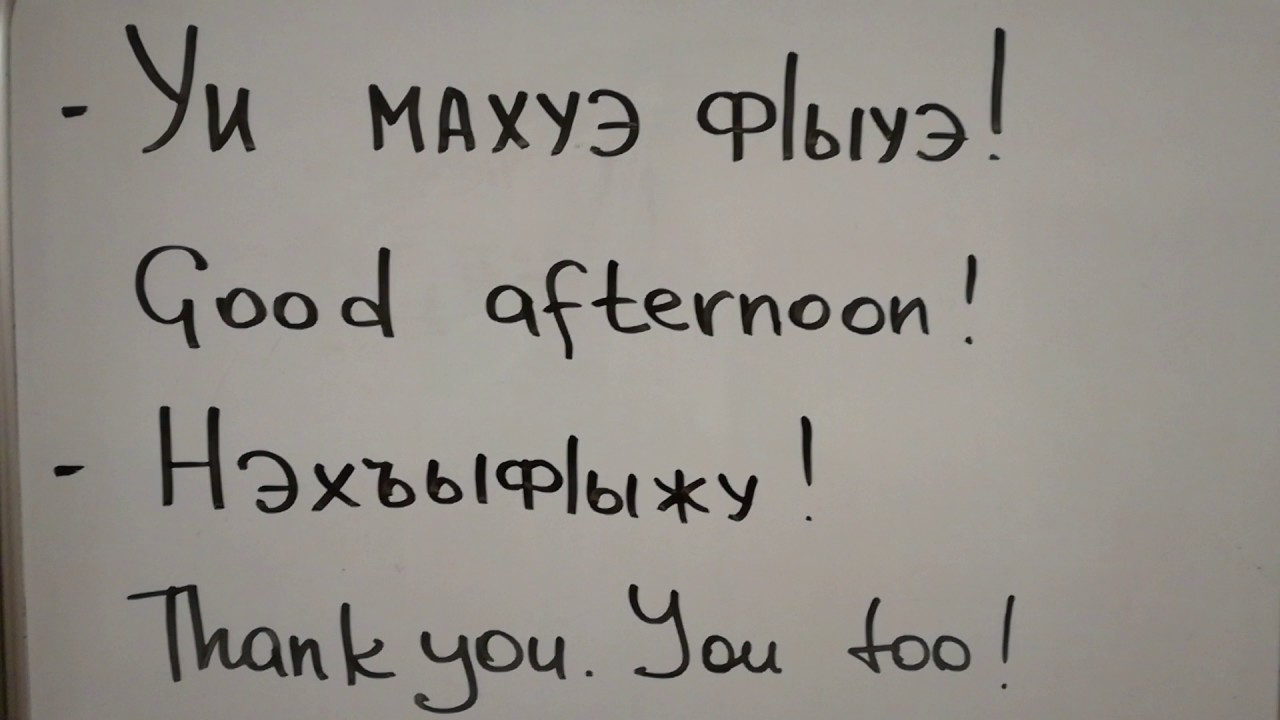 - Уи махуэ фӀыуэ!
Good afternoon!
- НэхъыфӀыжу!
Thank you. You too!